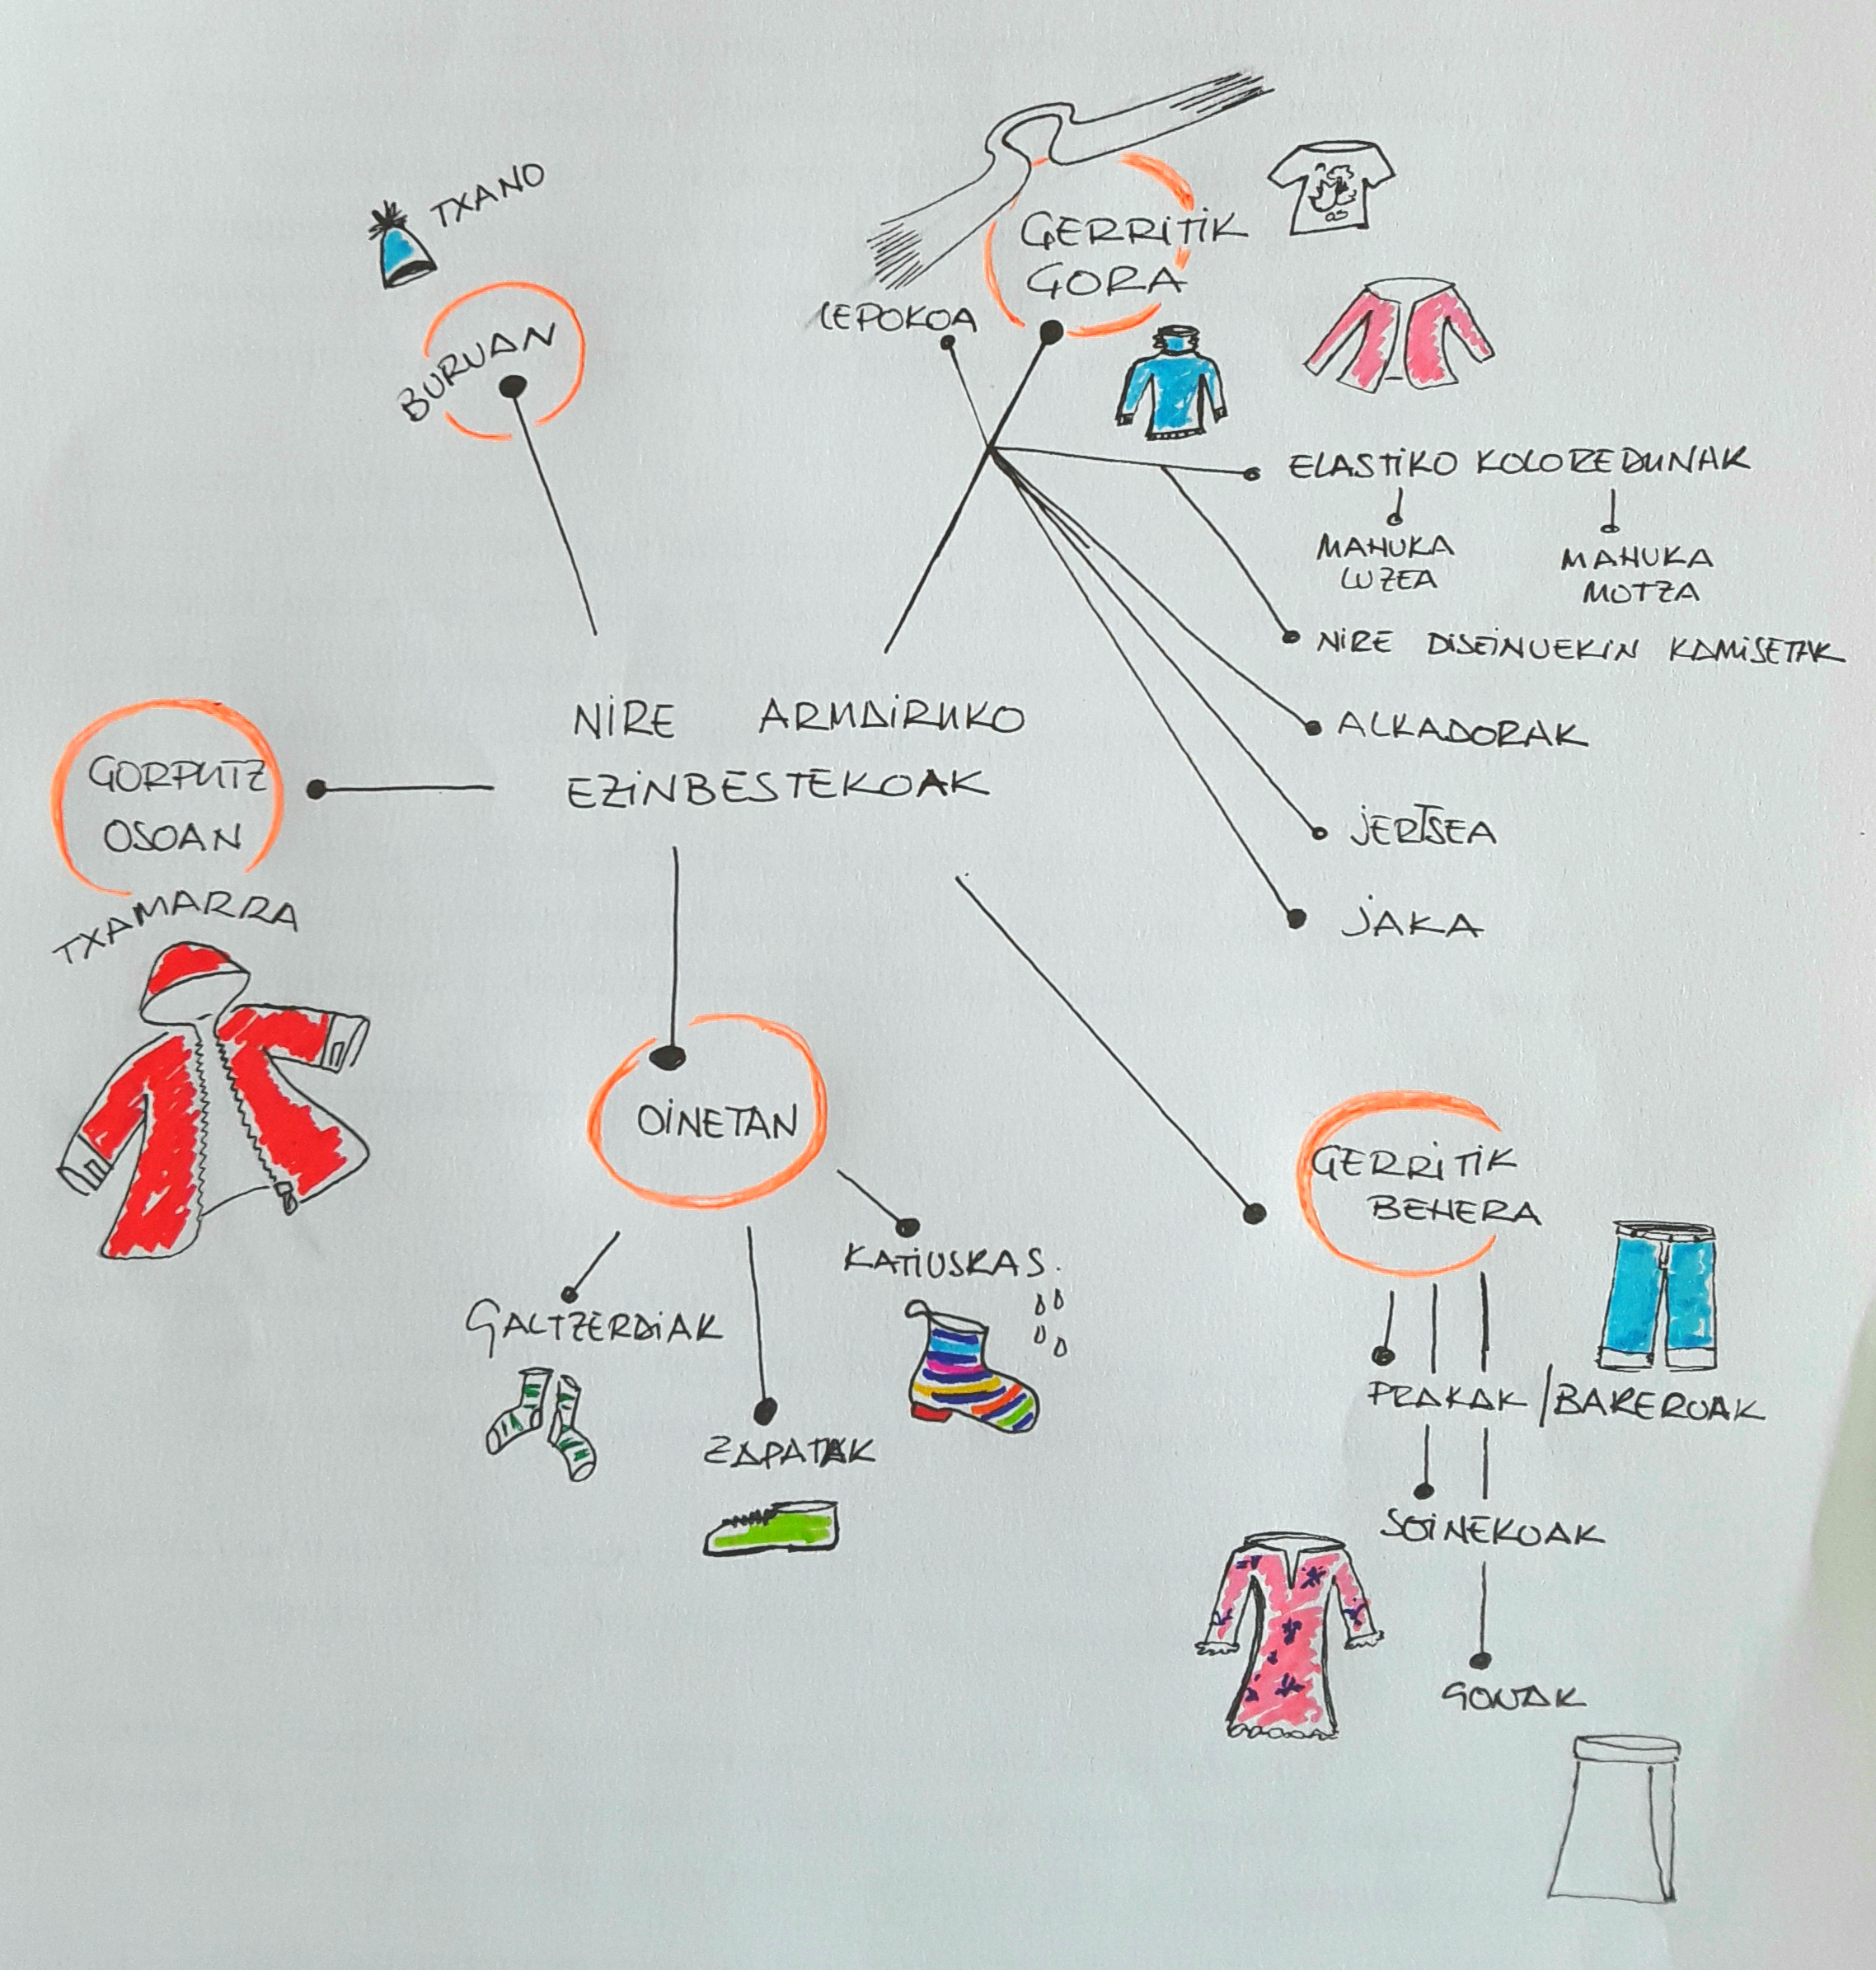 TXANO
BURUAN
GERRITIK
GORA
LEPOKOA
ELASTIKO KOLOREDUNAK
MAHUKA
LUZEA
MAHUKA
MOTZA
NIRE DISEINUEKIN KAMISETAK
ALKADORAK
JERTSEA
JAKA
NIRE ARMAIRUKO
EZINBESTEKOAK
GORPUTZ
OSOAN
TXAMARRA
OINETAN
GALTZERDIAK
ZAPATAK
KATIUSKAS.
GERRITIK
BEHERA
PRAKAK / BAKEROAK
SOINEKOAK
GONAK